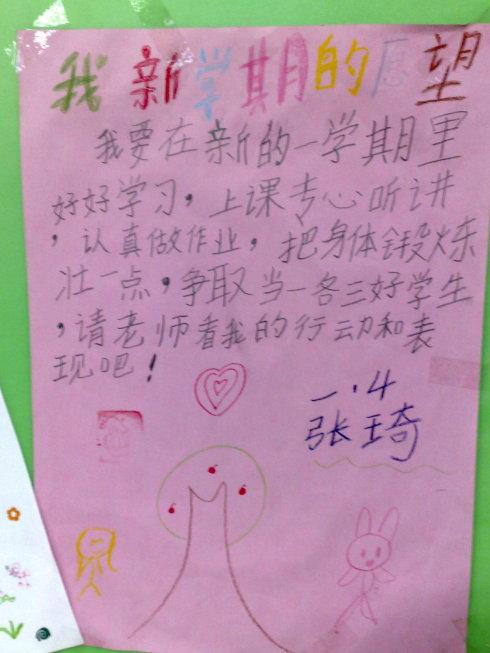 我新学期的愿望
我要在新的一学期里
好好学习，上课专心听讲
，认真做作业，把身体锻炼
壮一点，争取当一各三好学生
，请老师看我的行动和表
现吧！
一·4
张琦